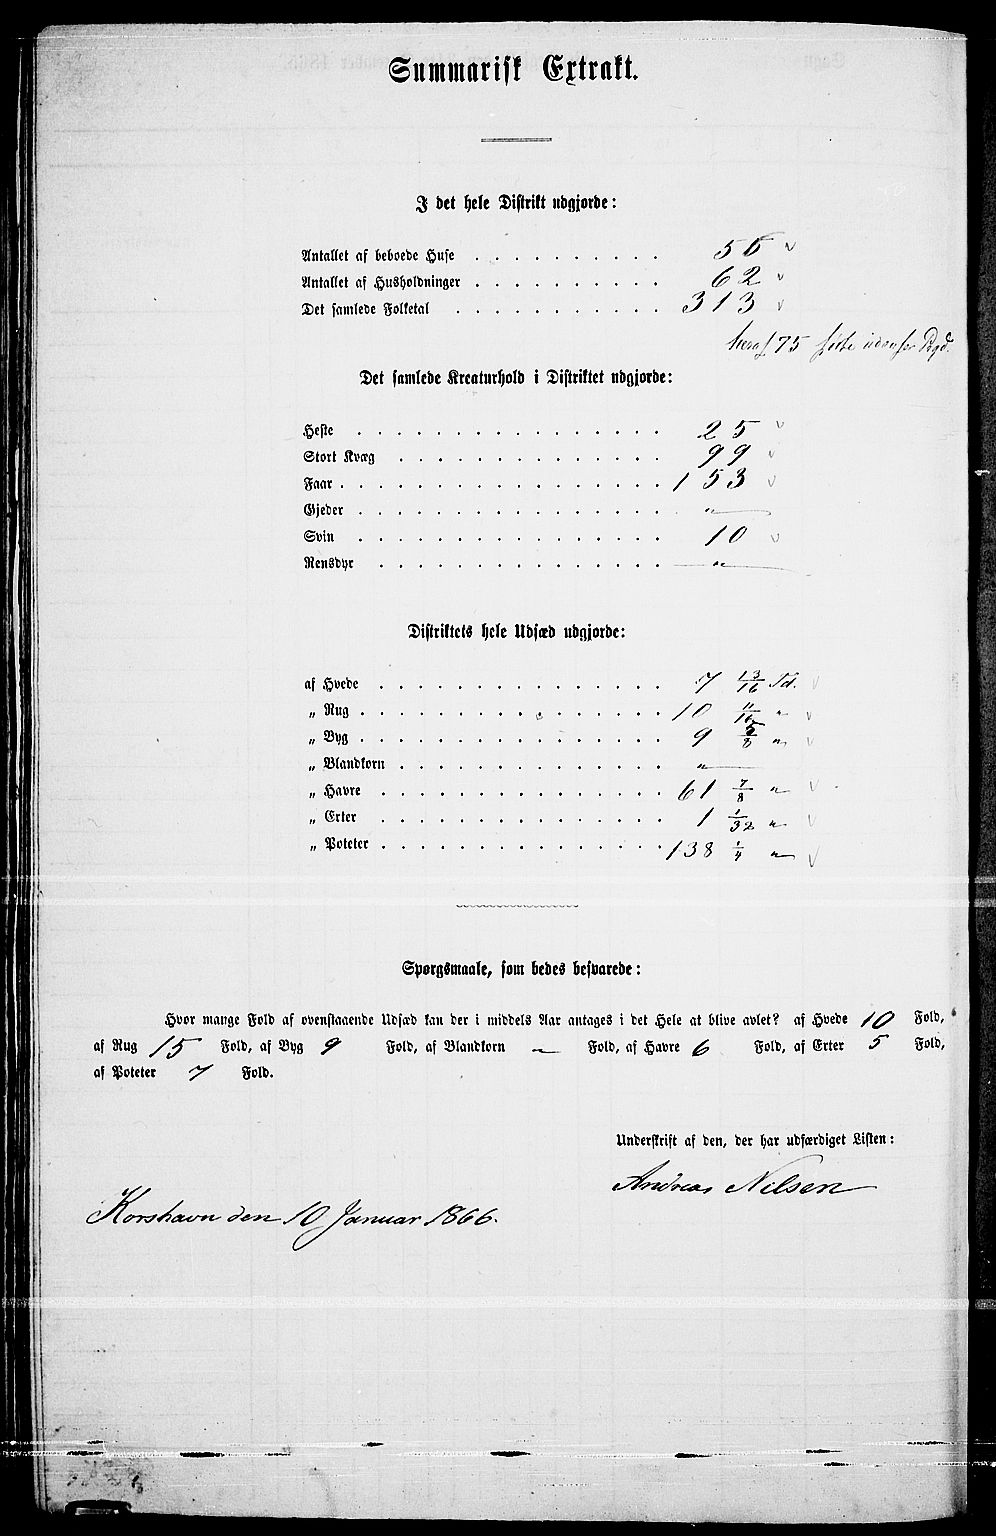 Summarisk Extrakt.
I det hele Distrikt udgjorde:
Antallet af beboede Huse . . . . . . . . . . 56
Antallet af Husholdninger . . . . . . . . . . 62
Det samlede Folketal . . . . . . . . . . . 313
heraf 75 fødte udenfor Prgd.
Det samlede Kreaturhold i Distriktet udgjorde:
Heste . . . . . . . . . . . . . . . . 25
Stort Kvæg . . . . . . . . . . . . . . 99
Faar . . . . . . . . . . . . . . . . . 153
Gjeder . . . . . . . . . . . . . . . . "
Svin . . . . . . . . . . . . . . . . 10
Rensdyr . . . . . . . . . . . . . . . "
Distriktets hele Udsæd udgjorde:
af Hvede . . . . . . . . . . . . . . . 7 13/16 Td.
„ Rug . . . . . . . . . . . . . . . . 10 11/16 "
„ Byg . . . . . . . . . . . . . . . . 9 5/8 "
„ Blandkorn . . . . . . . . . . . . . . "
„ Havre . . . . . . . . . . . . . . . 61 7/8 "
„ Erter . . . . . . . . . . . . . . . 1 1/32 "
„ Poteter . . . . . . . . . . . . . . . 138 1/4 "
Spørgsmaale, som bedes besvarede:
Hvor mange Fold af ovenstaaende Udsæd kan der i middels Aar antages i det Hele at blive avlet? af Hvede 10 Fold,
af Rug 15 Fold, af Byg 9 Fold, af Blandkorn — Fold, af Havre 6 Fold, af Erter 5 Fold,
af Poteter 7 Fold.
Underskrift af den, der har udfærdiget Listen:
Andreas Nilsen
Korshavn den 10 Januar 1866.